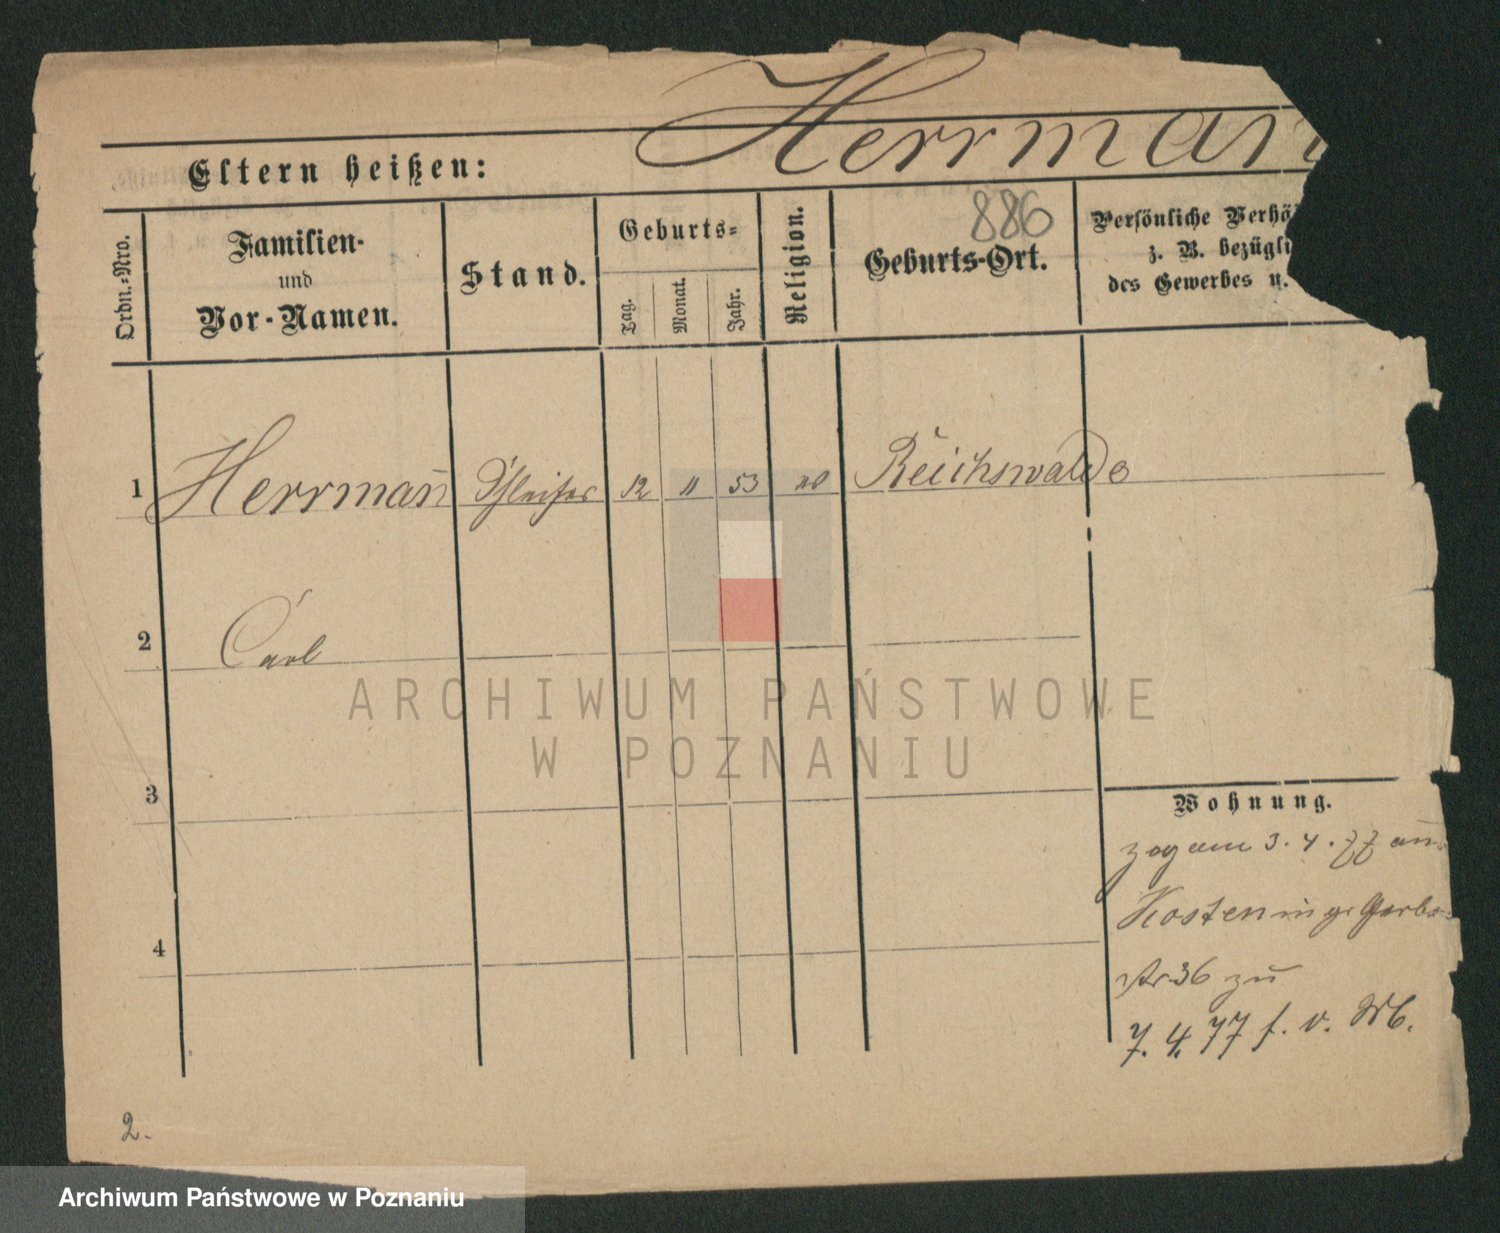 Herrman
Eltern heißen:
Ordn.-Nro.
Familien-
und
Vor-Namen.
Stand.
Geburts-
Tag.
Monat.
Jahr.
Religion.
886
Geburts-Ort.
Persönliche Verhä
z. B. bezügli
des Gewerbes u.
1 Herrman̄ 12 11 53 Reichswalde
2 Carl
3
4
Wohnung.
zog am 3. 4. 77
Kosten
36 zu
7. 4. 77 f. v.
2.
ARCHIWUM PAŃSTWOWE
W POZNANIU
Archiwum Państwowe w Poznaniu